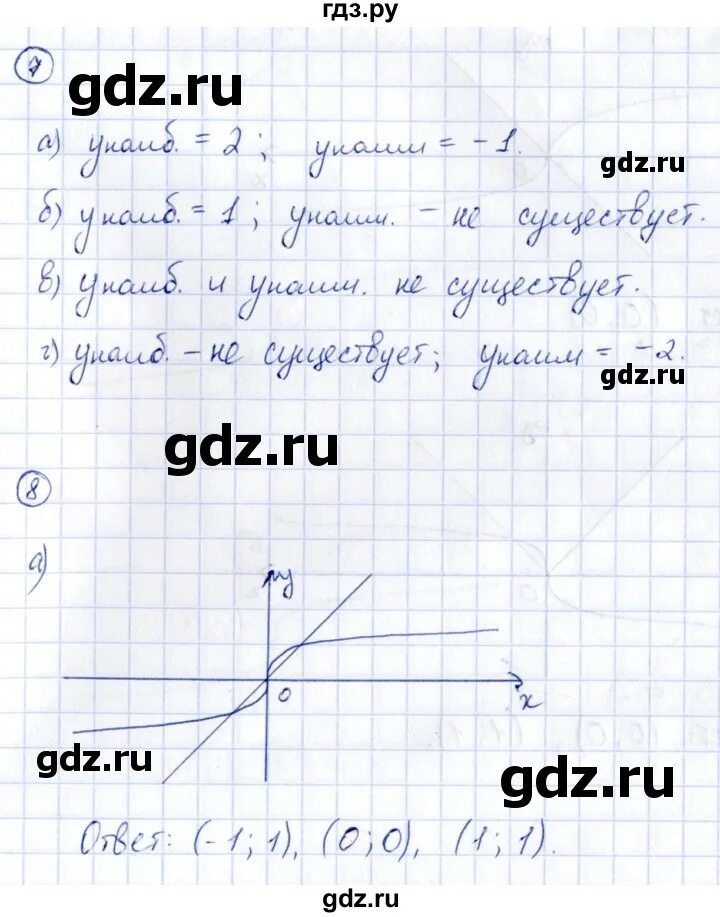 гдз.ру
7
gdz.ru
а) yнаиб. = 2; yнаим = -1.
gdz.ru
б) yнаиб. = 1; yнаим. - не существует.
в) yнаиб. и yнаим. не существует.
г) yнаиб. - не существует; yнаим = -2.
gdz.ru
gdz.ru
8
а)
y
0
x
gdz.ru
gdz.ru
Ответ: (-1; 1), (0; 0), (1; 1).
gdz.ru